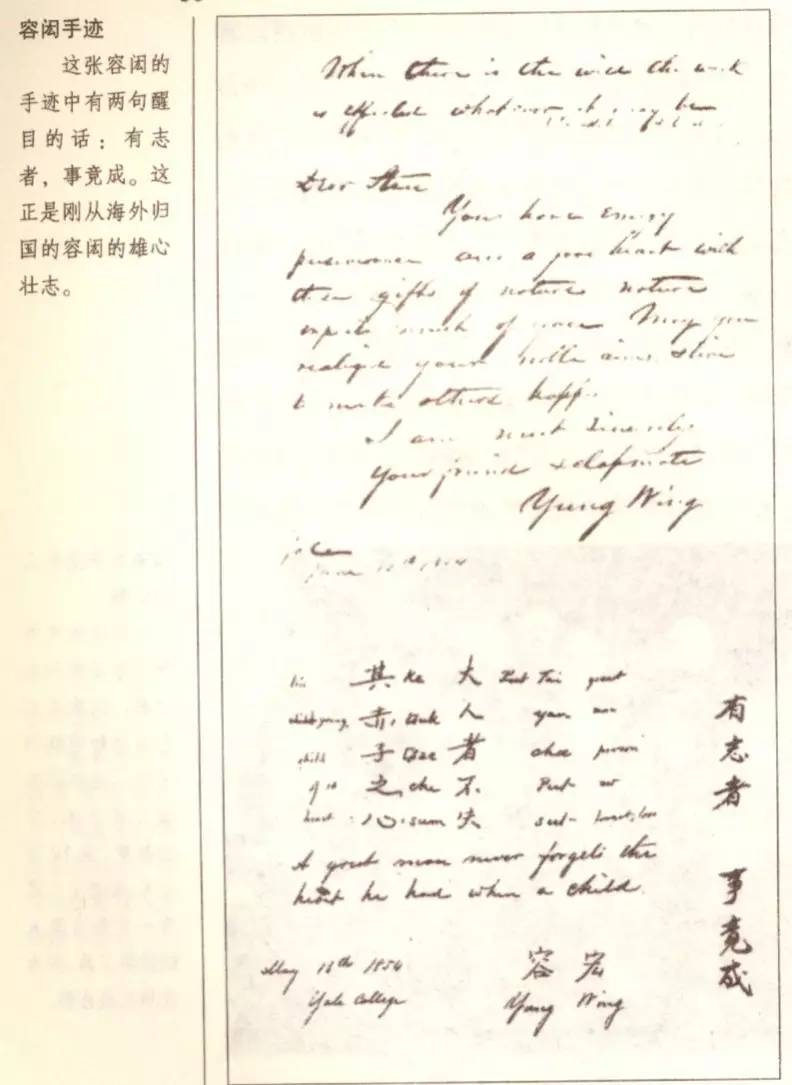 容闳手迹
这张容闳的
手迹中有两句醒
目的话：有志
者，事竟成。这
正是刚从海外归
国的容闳的雄心
壮志。
When there is the will the work
is effected whatever it may be
Dear
You have energy
perseverance and a good heart with
these gifts of nature nature
expects much of you. May you
realize your noble aims & live
to make others happy.
I am most sincerely
Your friend & classmate
Yung Wing
June
其 Ke 大 great
赤 人 yan man
child 子 者 chee person
of is 之 che 不 Put
heart 心 sum 失 lose
A great man never forgets the
heart he had when a child.
有志者 事竟成
May 18th 1854 容宏
Yale College Yung Wing